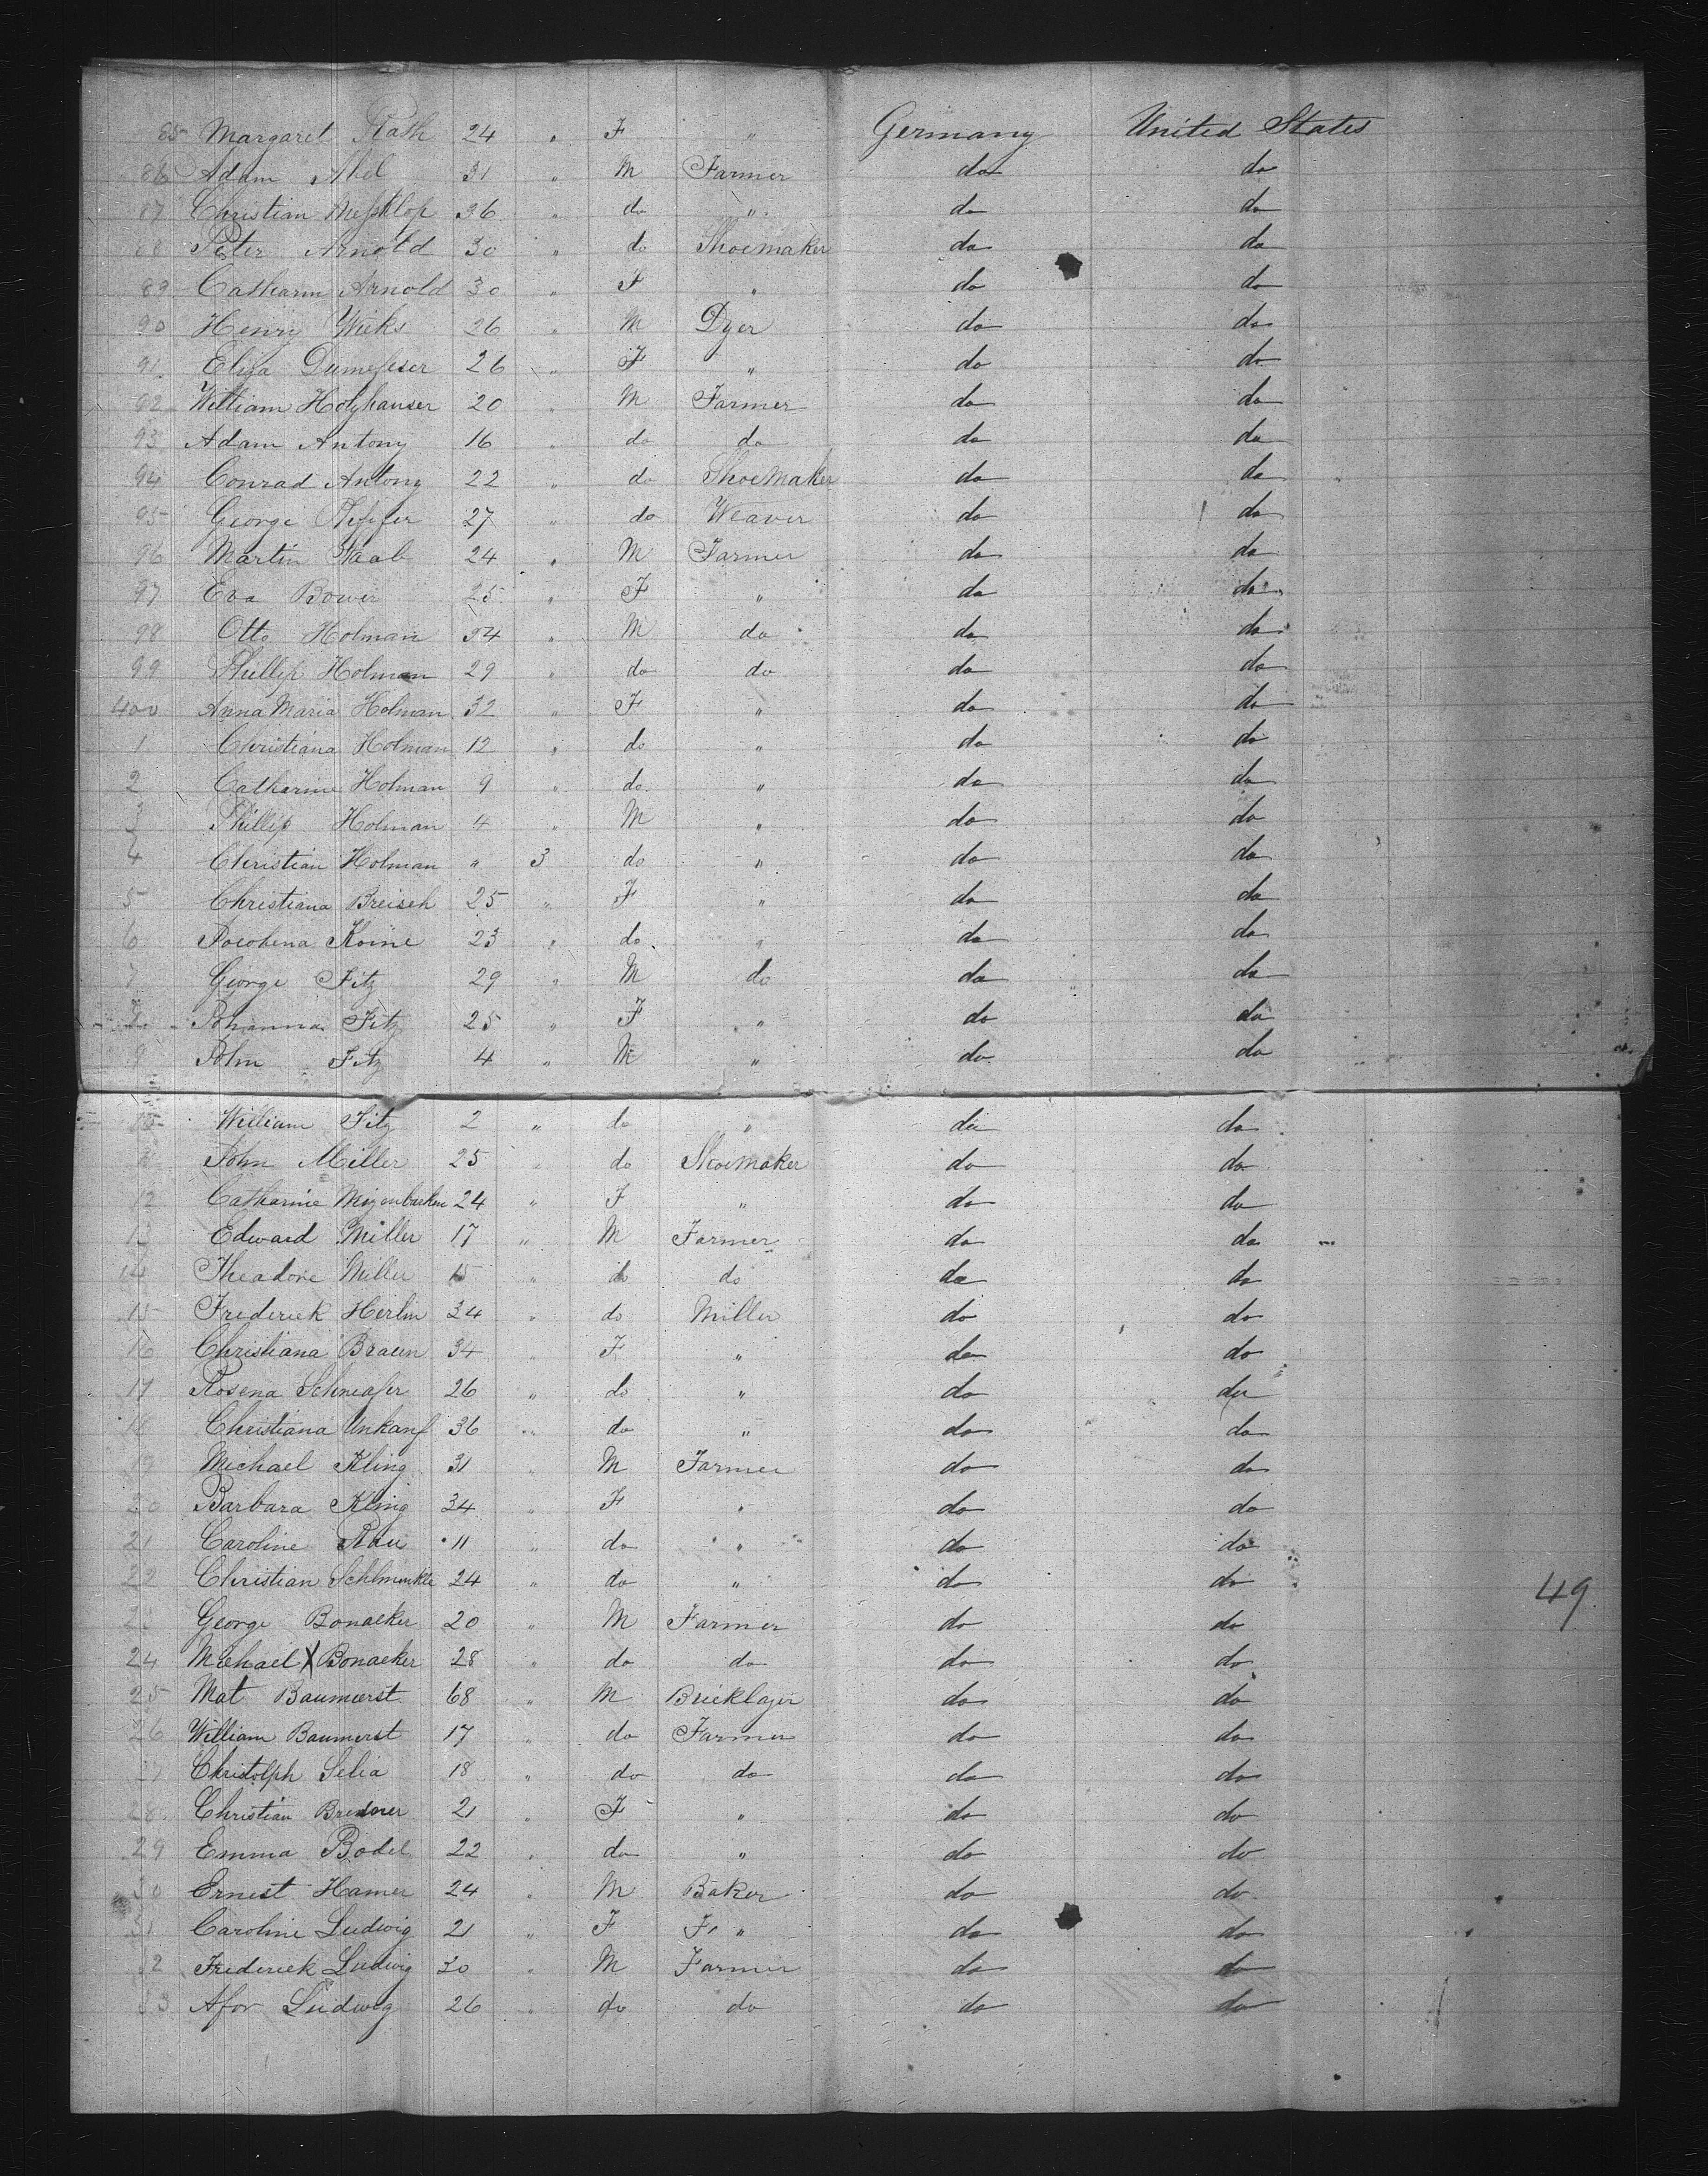 85 Margaret Rath 24 " F " Germany United States
86 Adam Abel 31 " M Farmer do do
87 Christian 36 " do " do do
88 Peter Arnold 30 " do Shoemaker do do
89 Catharin Arnold 30 " F " do do
90 Henry Wicks 26 " M Dyer do do
91 Eliza 26 " F " do do
92 William Holzhauser 20 " M Farmer do do
93 Adam Antony 16 " do do do do
94 Conrad Antony 22 " do ShoeMaker do do
95 George 27 " do Weaver do do
96 Martin 24 " M Farmer do do
97 Eva Bower 25 " F " do do
98 Otto Holman 34 " M do do do
99 Phillip Holman 29 " do do do do
400 Anna Maria Holman 32 " F " do do
1 Christiana Holman 12 " do " do do
2 Catharine Holman 9 " do " do do
3 Phillip Holman 4 " M " do do
4 Christian Holman " 3 do " do do
5 Christiana Breisch 25 " F " do do
6 Koine 23 " do " do do
7 George Fitz 29 " M do do do
8 Johanna Fitz 25 " F " do do
9 John Fitz 4 " M " do do
10 William Fitz 2 " do " do do
11 John Miller 25 " do Shoemaker do do
12 Catharine 24 " F " do do
13 Edward Miller 17 " M Farmer do do
14 Theadore Miller 15 " do do do do
15 Frederick Herlin 34 " do Miller do do
16 Christiana Braun 34 " F " do do
17 Rosena 26 " do " do do
18 Christiana Unkanf 36 " do " do do
19 Michael Kling 31 " M Farmer do do
20 Barbara Kling 34 " F " do do
21 Caroline Rau 11 " do " do do
22 Christian 24 " do " do do 49
23 George Bonacker 20 " M Farmer do do
24 Michael X Bonacker 28 " do do do do
25 Mat Baumerst 68 " M Bricklayer do do
26 William Baumerst 17 " do Farmer do do
27 Christolph Selia 18 " do do do do
28 Christian 21 " F " do do
29 Emma Bodel 22 " do " do do
30 Ernest Hamer 24 " M Baker do do
31 Caroline Ludwig 21 " F F, " do do
32 Frederick Ludwig 30 " M Farmer do do
33 Afor Ludwig 26 " do do do do